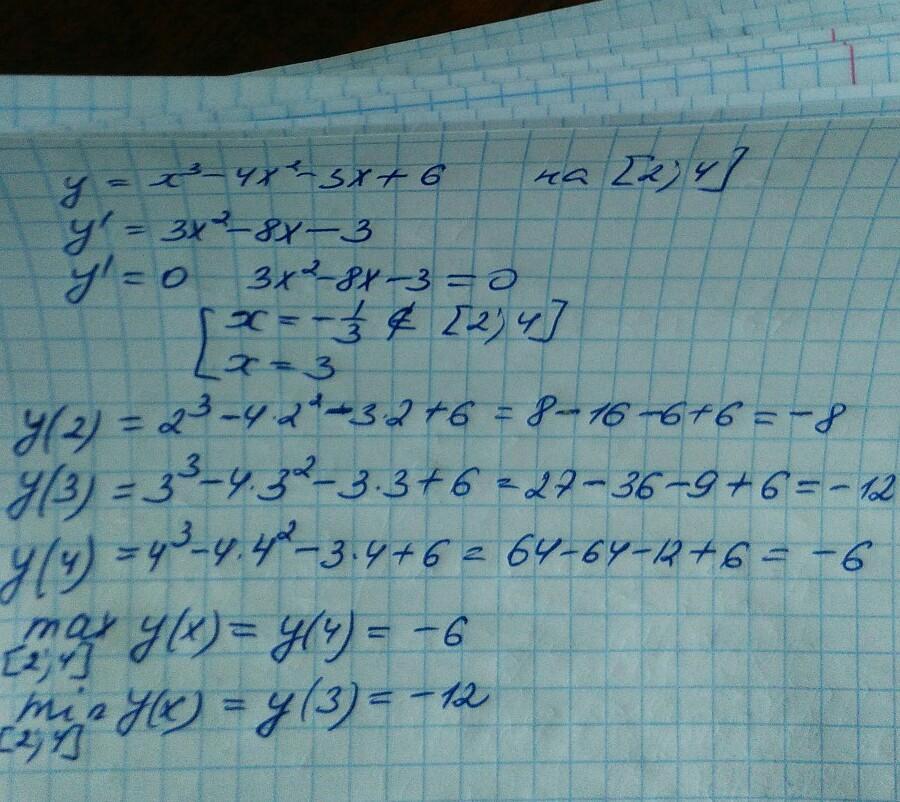 y = x³ - 4x² - 3x + 6 на [2; 4]
y' = 3x² - 8x - 3
y' = 0 3x² - 8x - 3 = 0
[ x = -1/3 ∉ [2; 4]
x = 3
y(2) = 2³ - 4·2² - 3·2 + 6 = 8 - 16 - 6 + 6 = -8
y(3) = 3³ - 4·3² - 3·3 + 6 = 27 - 36 - 9 + 6 = -12
y(4) = 4³ - 4·4² - 3·4 + 6 = 64 - 64 - 12 + 6 = -6
max y(x) = y(4) = -6
[2; 4]
min y(x) = y(3) = -12
[2; 4]